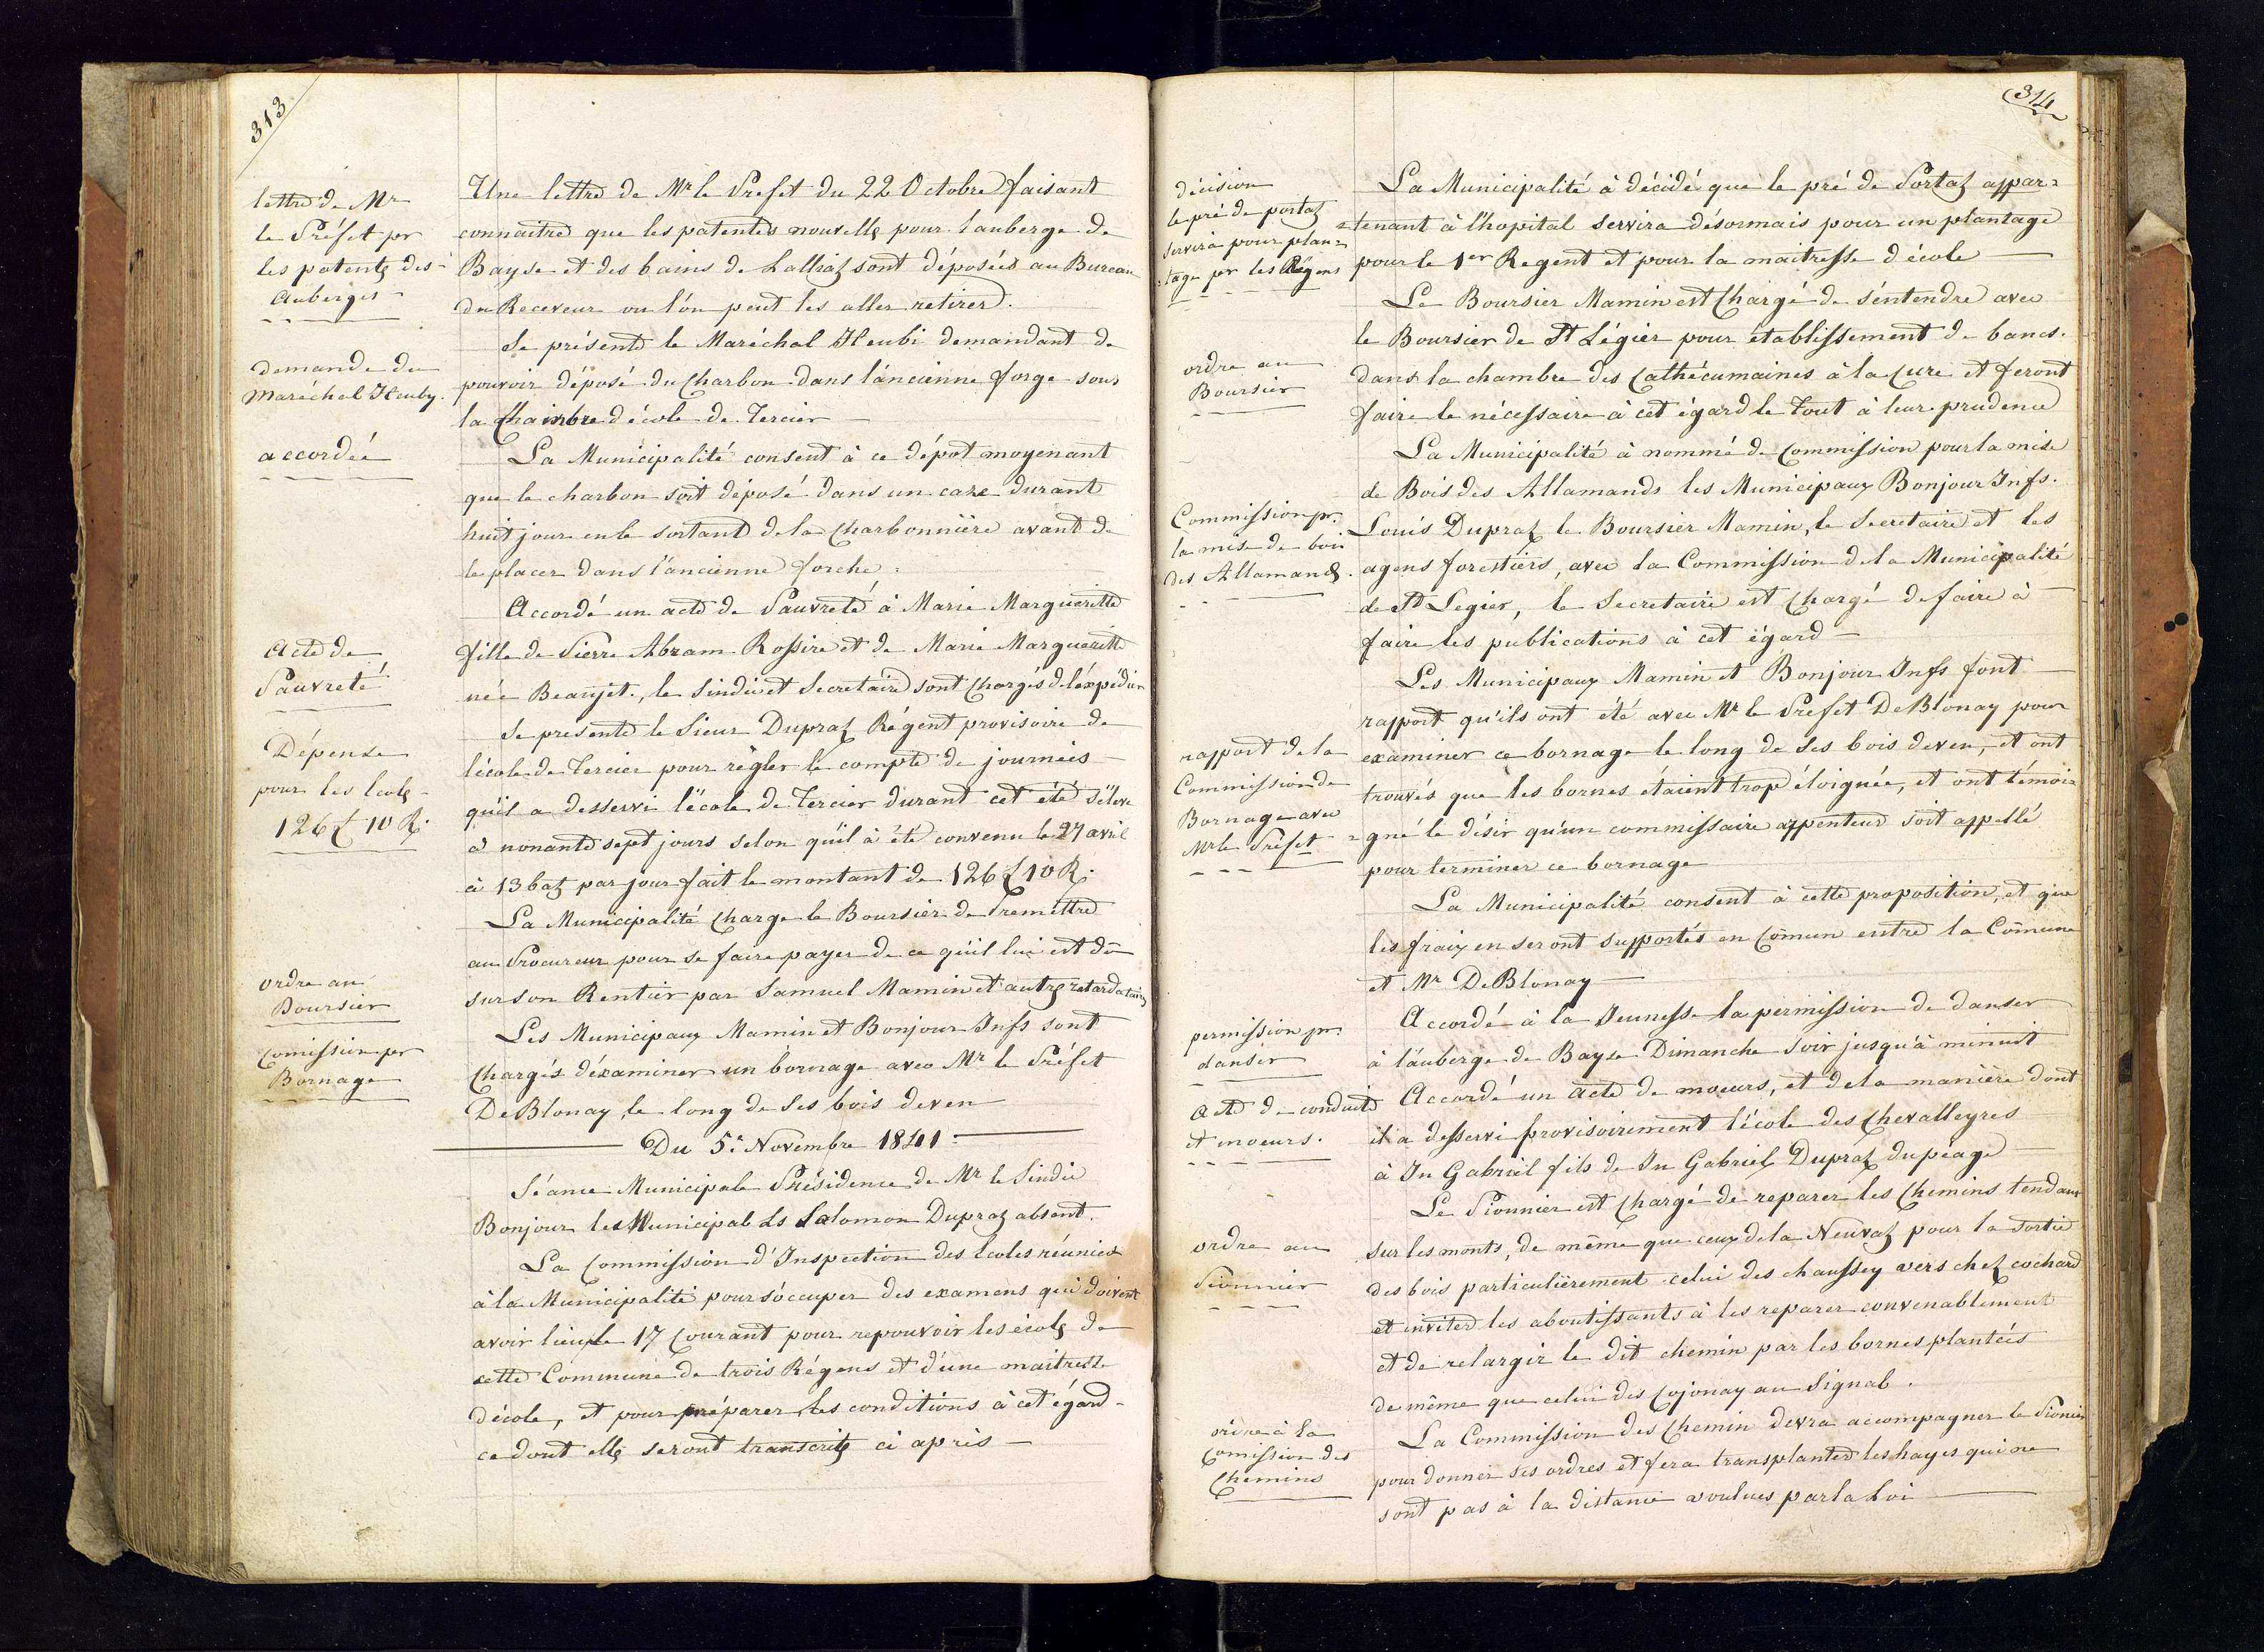 313
lettre de Mr
le Préfet pr
les patentes des
Auberges
Une lettre de Mr le Prefet du 22 Octobre faisant
connaitre que les patentes nouvelles pour l'auberge de
Bayse et des bains de Lalliaz sont déposées au Bureau
du Receveur ou l'on peut les aller retirer.
demande du
Maréchal Heuby.
Se présente le Maréchal Heubi demandant de
pouvoir déposé du Charbon dans l'ancienne forge sous
la Chambre d'école de Tercier
accordée
La Municipalité consent à ce dépot moyenant
que le charbon soit déposé dans un care durant
huit jour en le sortant de la Charbonnière avant de
le placer dans l'ancienne forche.
Acte de
Pauvreté
Accordé un acte de Pauvreté à Marie Margueritte
fille de Pierre Abram Rossire et de Marie Margueritte
née Beaujet, le Sindic et Secretaire sont Chargés de l'éxpédier
Dépense
pour les Ecoles
126 £ 10 R.
Se présente le Sieur Dupraz Régent provisoire de
l'école de Tercier pour règler le compte de journées
qu'il a desservi l'école de Tercier durant cet été s'éleve
à nonante sept jours selon qu'il à été convenu le 27 avril
à 13 batz par jour fait le montant de 126 £ 10 R.
ordre au
Boursier
La Municipalité Charge le Boursier de Premettre
au Procureur pour se faire payer de ce qu'il lui est dû
sur son Rentier par Samuel Mamin et autres retardataires
Comission pr
Bornage
Les Municipaux Mamin et Bonjour Infs sont
Chargés d'éxaminer un bornage avec Mr le Préfet
DeBlonay le long de ses bois deven
Du 5e Novembre 1841.
Séance Municipale Présidence de Mr le Sindic
Bonjour les Municipal Ls Salomon Dupraz absent.
La Commission d'Inspection des Ecoles réunies
à la Municipalité pour s'óccuper des examens qui doivent
avoir lieu le 17 Courant pour repouvoir les écoles de
cette Commune de trois Régens et d'une maitresse
d'école, et pour préparer les conditions à cet égard
ce dont elles seront transcrites ci après
314
décision
le pré de portaz
servira pour plan=
=tage pr les Régens
La Municipalité à décidé que le pré de Portaz appar=
=tenant à l'hopital servira désormais pour un plantage
pour le 1er Regent et pour la maitresse d'école
ordre au
Boursier
Le Boursier Mamin est Chargé de s'éntendre avec
le Boursier de St Légier pour établissement de bancs.
dans la chambre des Cathécumaines à la Cure et feront
faire le nécessaire à cet égard le Tout à leur prudence
Commission pr.
la mise de bois
des Allamands.
La Municipalité à nommé de Commission pour la mise
de Bois des Allamands les Municipaux Bonjour Infs.
Louis Dupraz le Boursier Mamin, le Secretaire et les
agens forestiers, avec la Commission de la Municipalité
de St Legier, le Secretaire est Chargé de faire à
faire les publications à cet égard
rapport de la
Commission de
Bornage avec
Mr le Préfet
Les Municipaux Mamin et Bonjour Infs font
rapport qu'ils ont été avec Mr le Prefet DeBlonay pour
examiner ce bornage le long de ses bois deven, et ont
trouvés que les bornes étaient trop éloignée, et ont témoi=
=gné le désir qu'un commissaire arpenteur soit appellé
pour terminer ce bornage
La Municipalité consent à cette proposition, et que
les fraix en seront supportés en Comun entre la Comune
et Mr DeBlonay
permission pr.
danser
Accordé à la Jeunesse la permission de danser
à l'auberge de Bayse Dimanche Soir jusqu'à minuit
Acte de conduite
et moeurs.
Accordé un acte de moeurs, et de la manière dont
il a desservi provisoirement l'école des Chevalleyres
à Jn Gabriel fils de Jn Gabriel Dupraz du péage
ordre au
Pionnier
Le Pionnier est Chargé de reparer les Chemins tendant
sur les monts, de même que ceux de la Neuvaz pour la sortie
des bois particulièrement celui des chaussey vers chez cochard
et inviter les aboutissants à les reparer convenablement
et de relargir le dit chemin par les bornes plantées
de même que celui des Cojonay au Signal.
ordre à la
Comission des
Chemins
La Commission des Chemin devra accompagner le Pionier
pour donner ses ordres et fera transplanter les hayes qui ne
sont pas à la distance voulues par la Loi